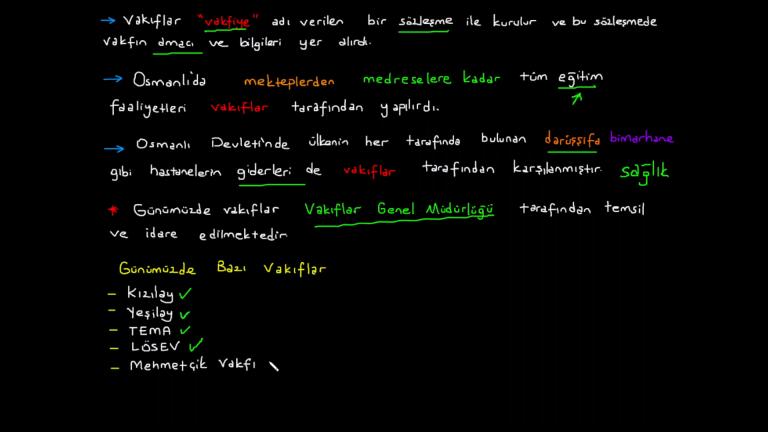 → Vakıflar "vakfiye" adı verilen bir sözleşme ile kurulur ve bu sözleşmede
vakfın amacı ve bilgileri yer alırdı.
→ Osmanlı'da mekteplerden medreselere kadar tüm eğitim
faaliyetleri vakıflar tarafından yapılırdı.
→ Osmanlı Devleti'nde ülkenin her tarafında bulunan darüşşifa bimarhane
gibi hastanelerin giderleri de vakıflar tarafından karşılanmıştır. sağlık
* Günümüzde vakıflar Vakıflar Genel Müdürlüğü tarafından temsil
ve idare edilmektedir
Günümüzde Bazı Vakıflar
– Kızılay ✓
– Yeşilay ✓
– TEMA ✓
– LÖSEV ✓
– Mehmetçik Vakfı